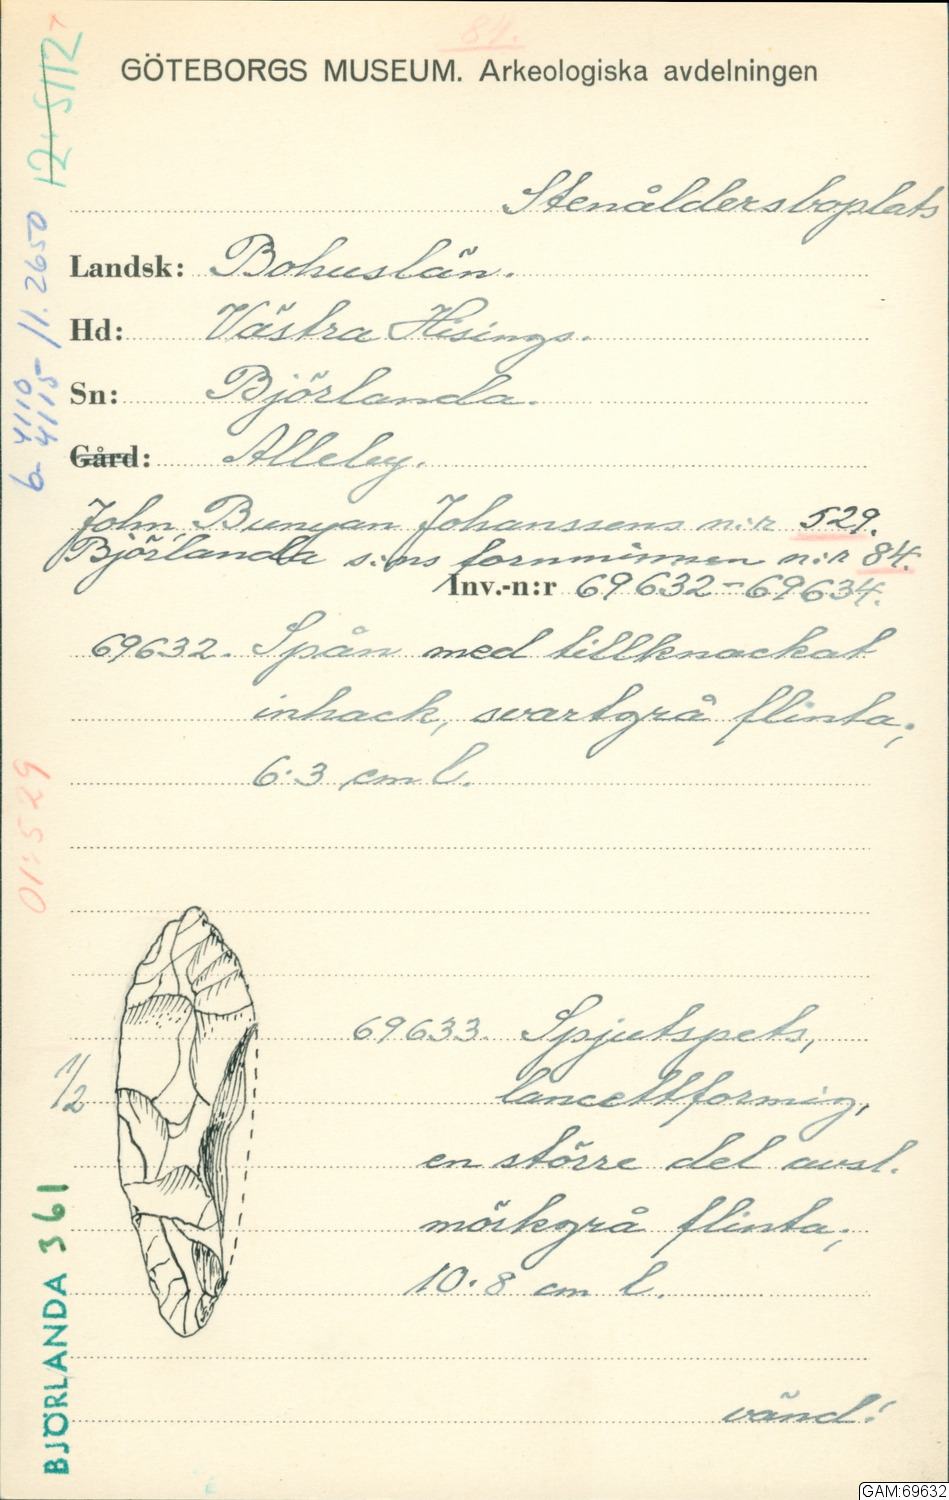 84.
GÖTEBORGS MUSEUM. Arkeologiska avdelningen
12-5112
Stenåldersboplats
Landsk: Bohuslän.
Hd: Västra Hisings.
Sn: Björlanda.
Gård: Alleby.
John Bunyan Johanssens n:r 529.
Björlanda s:ns fornminnen n:r 84.
Inv.-n:r 69632-69634.
69632. Spån med tillknackat
inhack, svartgrå flinta;
6.3 cm l.
69633. Spjutspets,
lancettformig,
en större del avsl.
mörkgrå flinta;
10.8 cm l.
vänd!
1/2
11.2650
4110
4115
01:529
BJÖRLANDA 361
GAM:69632